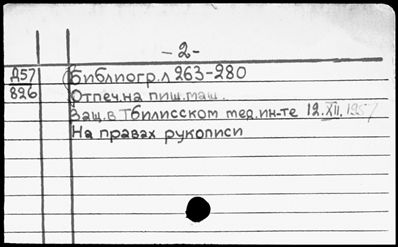 -2-
Д57 Библиогр. л 263-280
826 Отпеч. на пиш. маш.
Защ. в Тбилисском мед. ин-те 12.XII.1957
На правах рукописи